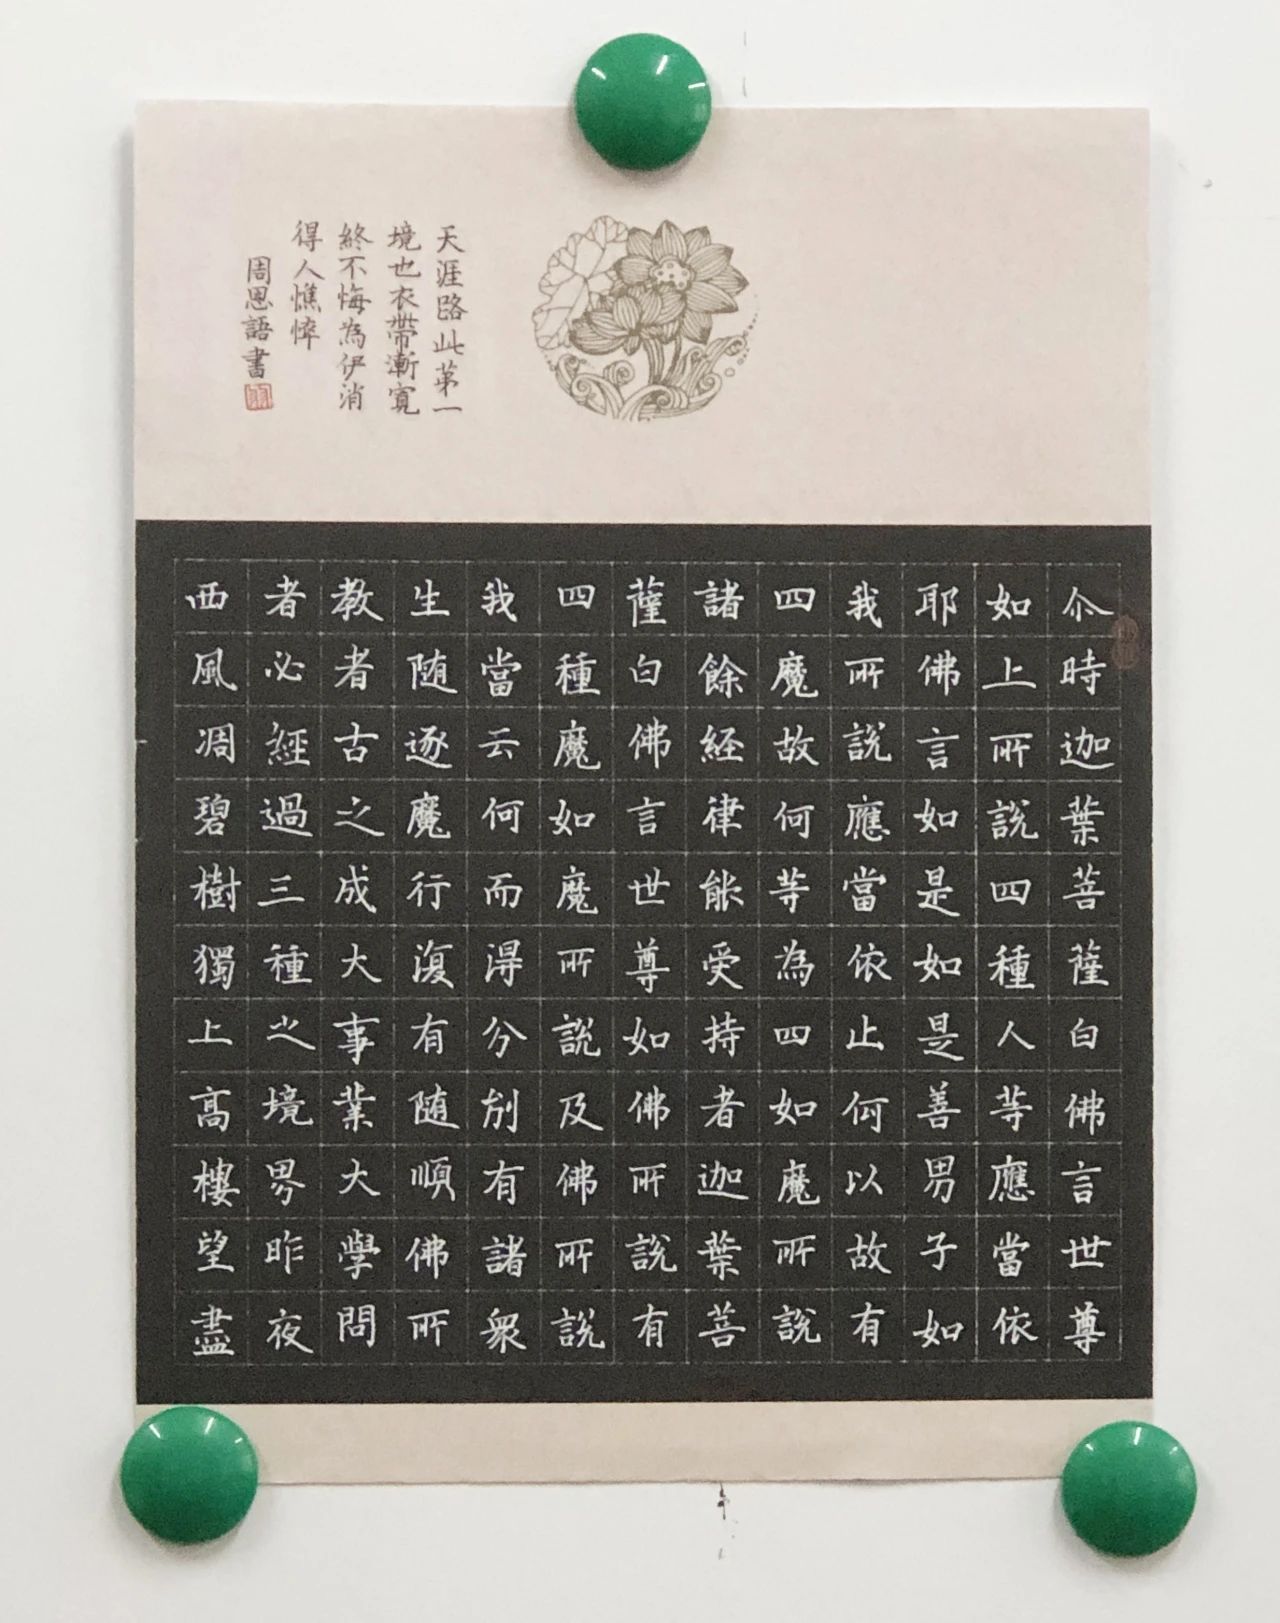 尒時迦葉菩薩白佛言世尊
如上所說四種人等應當依
耶佛言如是如是善男子如
我所說應當依止何以故有
四魔故何等為四如魔所說
諸餘経律能受持者迦葉菩
薩白佛言世尊如佛所說有
四種魔如魔所說及佛所說
我當云何而得分別有諸衆
生随逐魔行復有随順佛所
教者古之成大事業大學問
者必經過三種之境界昨夜
西風凋碧樹獨上高樓望盡
天涯路此第一
境也衣帶漸寬
終不悔為伊消
得人憔悴
周恩語書